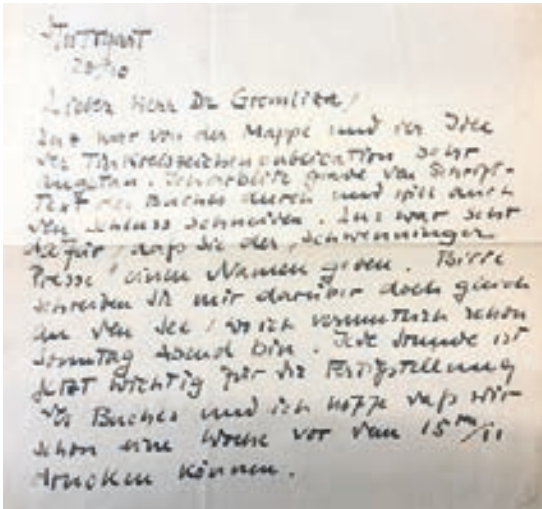 Stuttgart
20/10
Lieber Herr Dr Gremliza,
Lutz war von der Mappe und der Idee
der Tierkreiszeichenpublication sehr
angetan. Ich arbeite grade den Schrift-
text des Buches durch und will auch
den Schluss schreiben. Lutz war sehr
dafür, dass Sie der "Schwenninger
Presse" einen Namen geben. Bitte
schreiben Sie mir darüber doch gleich
an den See, wo ich vermutlich schon
Sonntag Abend bin. Jede Stunde ist
jetzt wichtig für die Fertigstellung
des Buches und ich hoffe dass wir
schon eine Woche vor dem 15ten/11
drucken können.